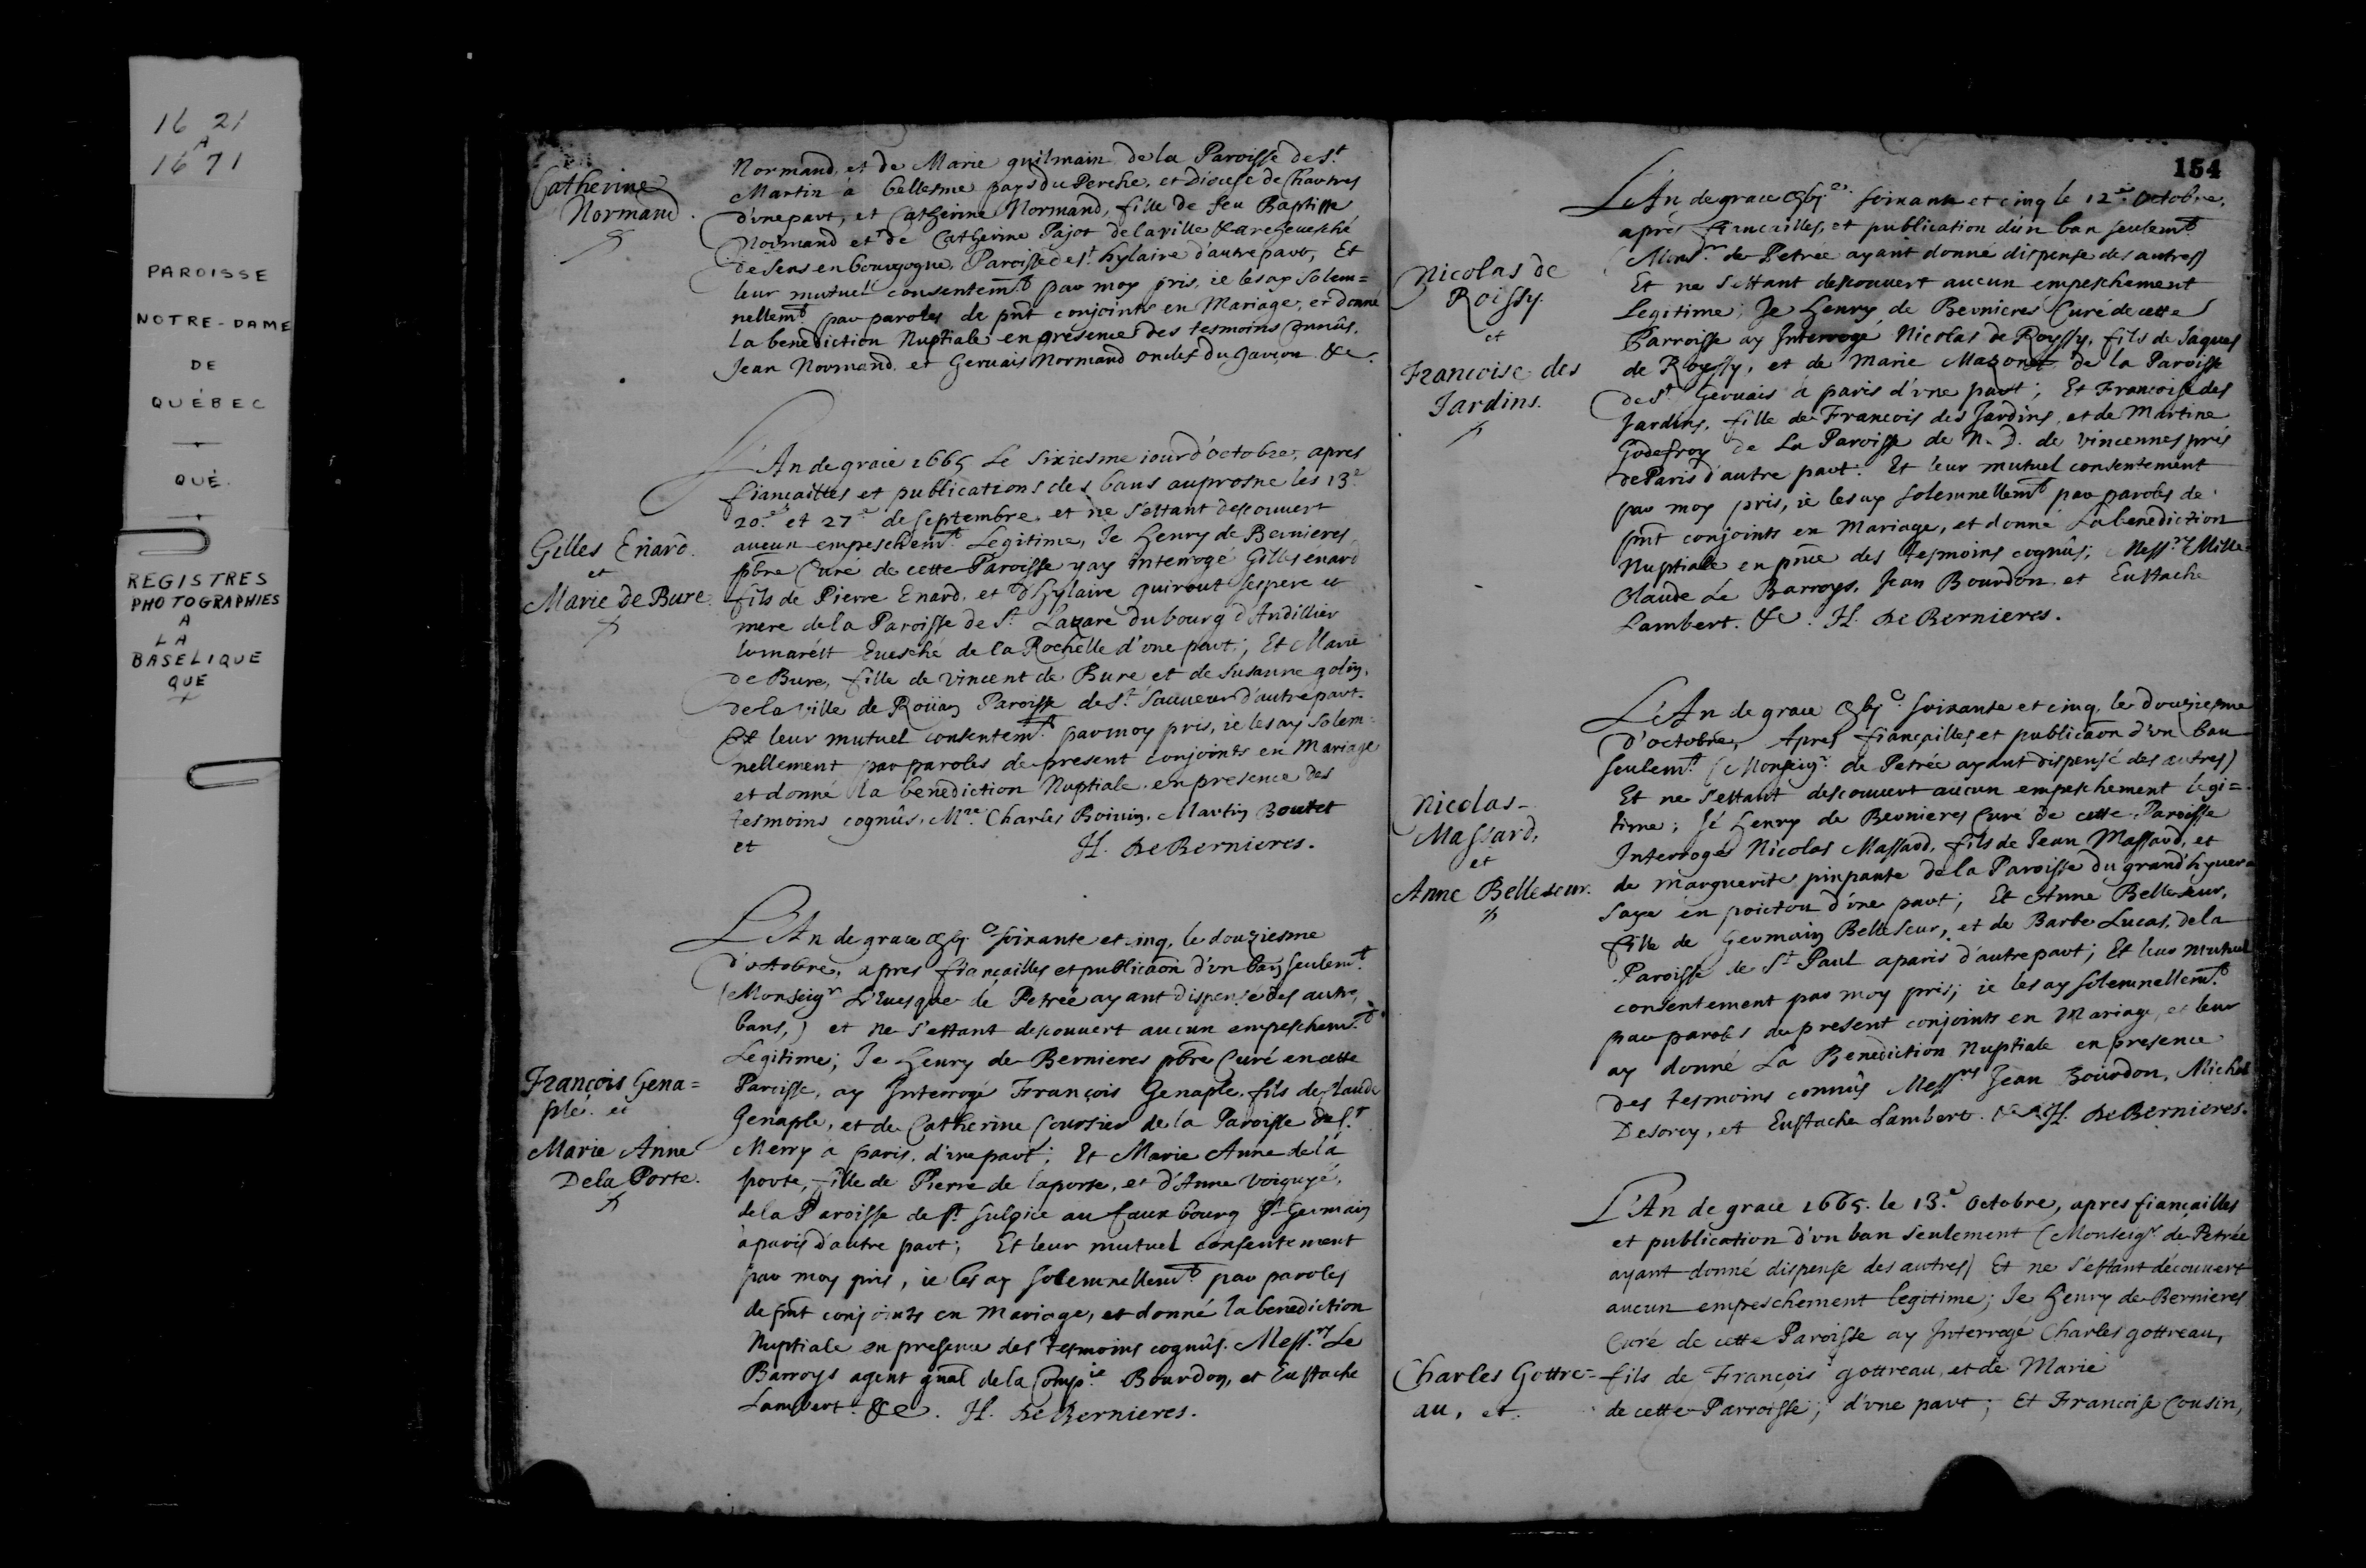 16 21
A
16 71
PAROISSE
NOTRE-DAME
DE
QUÉBEC
QUÉ.
REGISTRES
PHOTOGRAPHIES
A
LA
BASELIQUE
QUE
Catherine
Normand.
Normand, et de Marie guilmain de la Paroisse de St
Martin à bellesme pays du Perche, et Diocese de Chartres
d'vne part, et Catherine Normand, fille de feu Baptiste
Normand et de Catherine Pajot de la ville & archeuesché
de Sens en bourgogne, Paroisse de St hylaire d'autre part, Et
leur mutuel consentemt par moy pris, ie les ay solem=
nellemt par paroles de pnt conjoints en Mariage, et donné
la benediction Nuptiale en presence des tesmoins connûs,
Jean Normand, et Geruais Normand oncles du garçon &c.
Gilles Enard.
et
Marie De Bure.
L'An de grace 1665 Le sixiesme iour d'octobre, apres
fiancailles et publications des bans au prosne les 13e
20e et 27e de septembre, et ne s'estant descouuert
aucun empeschemt Legitime, Je Henry de Bernieres,
pbre Curé de cette Paroisse y ay interrogé Gilles enard
fils de Pierre Enard, et d'Hylaire quirout ses pere et
mere de la Paroisse de St Lazare du bourg d'Andillier
lemarêst Euesché de la Rochelle d'vne part; Et Marie
de Bure, fille de vincent de Bure et de Susanne golin,
de la ville de Roüan Paroisse de St Sauueur d'autre part.
Et leur mutuel consentemt par moy pris, ie les ay solem=
nellement par paroles de present conjoints en Mariage
et donné la benediction Nuptiale en presence des
tesmoins cognûs, Mre Charles Boiuin, Martin Boutet
et H. De Bernieres.
François Gena=
ple. et
Marie Anne
De la Porte.
L'An de grace soixante et cinq, le douziesme
d'octobre, apres fiancailles et publicaon d'vn ban seulemt
(Monseigr L'Euesque de Petrée ayant dispensé des autres
bans,) et ne s'estant descouuert aucun empeschemt
Legitime; Je Henry de Bernieres pbre Curé en cette
Paroisse, ay Interrogé François Genaple, fils de Claude
Genaple, et de Catherine Coursier de la Paroisse de St
Merry a paris, d'vne part; Et Marie Anne de la
porte, fille de Pierre de laporte, et d'Anne voiguyé,
de la Paroisse de St Sulpice au faux bourg St Germain
à paris d'autre part; Et leur mutuel consentement
par moy pris, ie les ay solemnellemt par paroles
de pnt conjoints en Mariage, et donné la benediction
Nuptiale en presence des tesmoins cognûs. Messrs Le
Barroys agent gnal de la Compie Bourdon, et Eustache
Lambert. &c. H. De Bernieres.
154
Nicolas de
Roissy.
et
Francoise des
Jardins.
L'An de grace soixante et cinq le 12e Octobre,
après fiancailles, et publication d'un ban seulemt
(Monsr de Petrée ayant donné dispense des autres)
Et ne s'estant descouuert aucun empeschement
Legitime; Je Henry de Bernieres Curé de cette
Parroisse ay Interrogé Nicolas de Royssy, fils de Jaques
de Royssy, et de Marie Mazonet de la Paroisse
de St Geruais à paris d'vne part; Et Francoise des
Jardins, fille de Francois des Jardins, et de Martine
Godefroy de La Paroisse de N. D. de vincennes prés
de Paris d'autre part. Et leur mutuel consentement
par moy pris, ie les ay solemnellemt par paroles de
pnt conjoints en Mariage, et donné La benediction
Nuptiale en pnce des tesmoins cognûs; Messrs Mille
Claude Le Barroys, Jean Bourdon et Eustache
Lambert. &c. H. De Bernieres.
Nicolas
Massard,
et
Anne Belleseur.
L'An de grace soixante et cinq, le douziesme
d'octobre, Apres fiançailles et publicaon d'vn ban
seulemt (Monseigr de Petrée ayant dispensé des autres)
Et ne s'estant descouuert aucun empeschement legi=
time; Jé Henry de Bernieres Curé de cette Paroisse
Interrogé Nicolas Massard, fils de Jean Massard, et
de Marguerite pinpante de la Paroisse du grand
en poictou d'vne part; Et Anne Belleseur,
fille de Germain Belleseur, et de Barbe Lucas, de la
Paroisse de St Paul a paris d'autre part; Et leur mutuel
consentement par moy pris; ie les ay solemnellemt
par paroles de present conjoints en Mariage, et leur
ay donné La Benediction Nuptiale en presence
des tesmoins connûs Messrs Jean Bourdon, Michel
Desorcy, et Eustache Lambert. &c. H. De Bernieres.
Charles Gottre=
au, et
L'An de grace 1665. le 13e Octobre, apres fiançailles
et publication d'vn ban seulement (Monseigr de Petrée
ayant donné dispense des autres) Et ne s'estant découuert
aucun empeschement legitime; Je Henry de Bernieres
Curé de cette Paroisse ay Interrogé Charles gottreau,
fils de François gottreau, et de Marie
de cette Parroisse; d'vne part; Et Francoise Cousin,